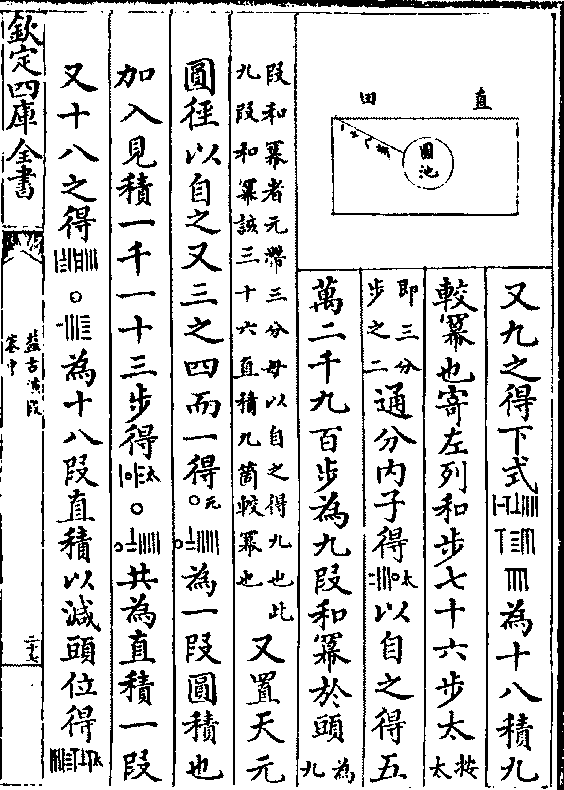 又九之得下式為十八積九
較冪也寄左列和步七十六步太按太
即三分步之二通分内子得太以自之得五
萬二千九百步為九段和冪於頭為九
段和冪者元帶三分母以自之得九也此
九段和冪該三十六直積九箇較冪也又置天元
圓徑以自之又三之四而一得元為一段圓積也
加入見積一千一十三步得太共為直積一段
又十八之得為十八段直積以減頭位得太
欽定四庫全書
益古演段
卷中
二十七
直田
圓池